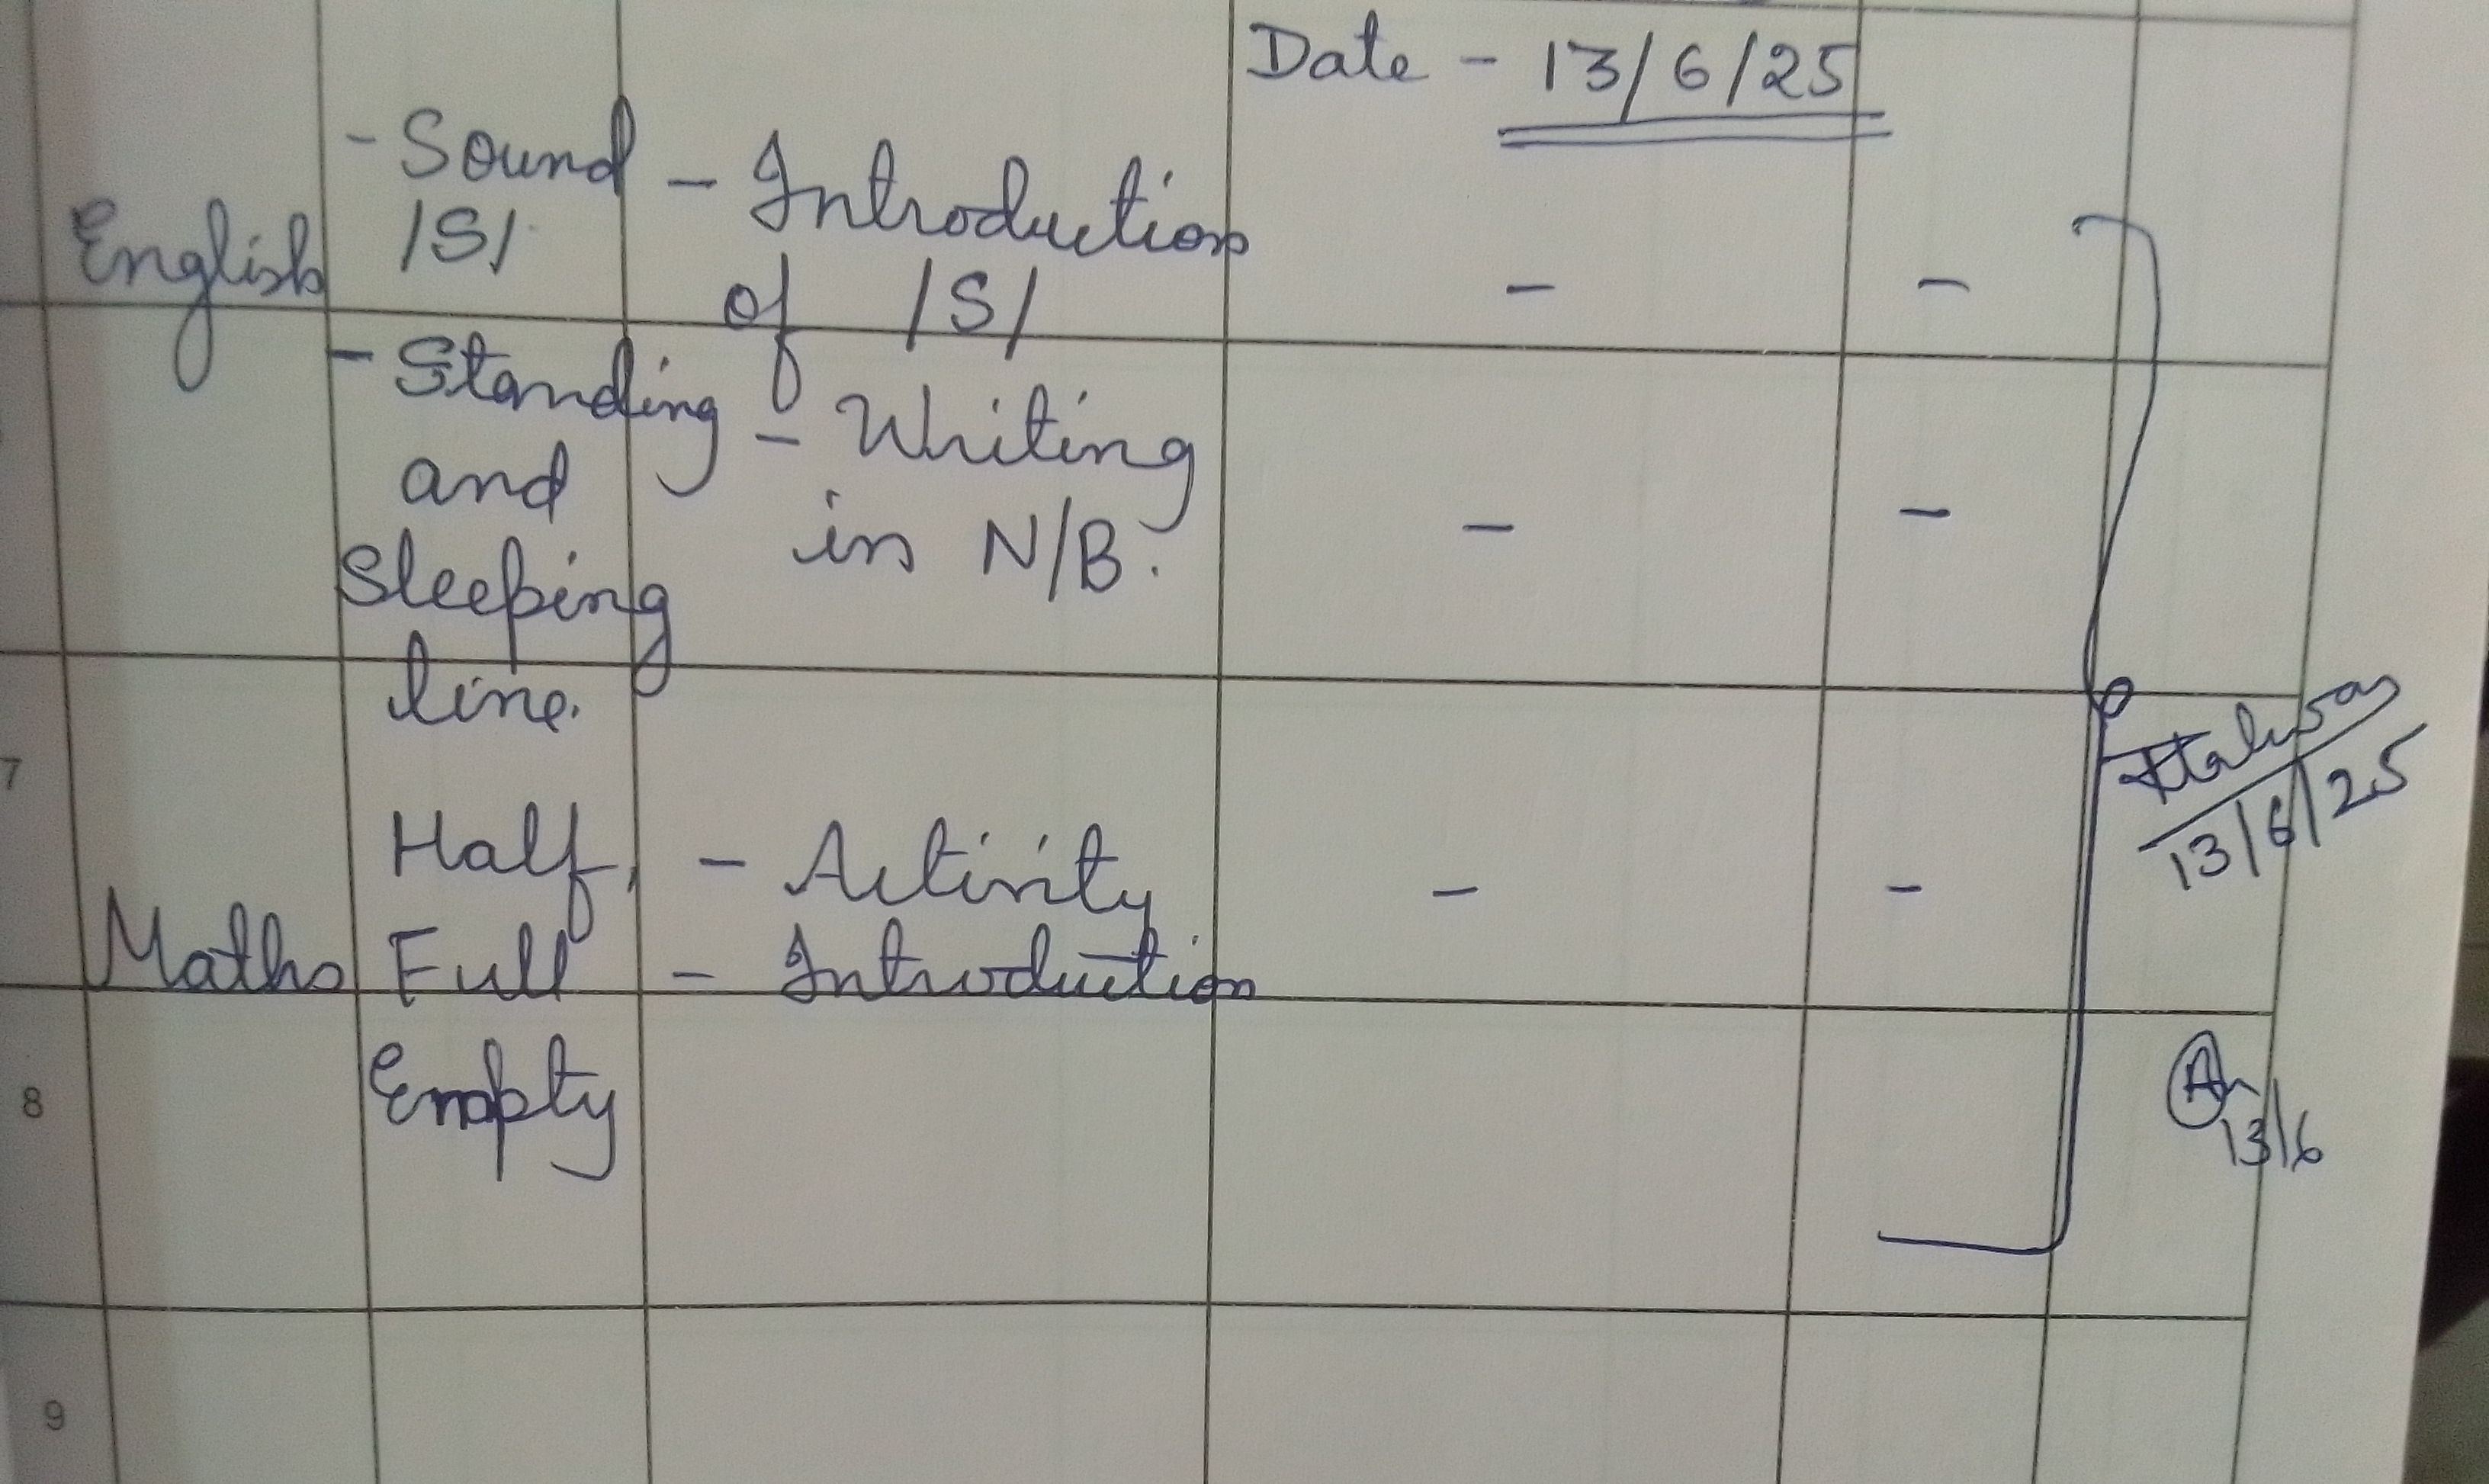 Date - 13/6/25
English
- Sound
/S/
- Introduction
of /S/
-
-
- Standing
and
sleeping
line.
- Writing
in N/B.
-
-
7
Maths
Half,
Full
Empty
- Activity
- Introduction
-
-
13/6/25
8
13/6
9